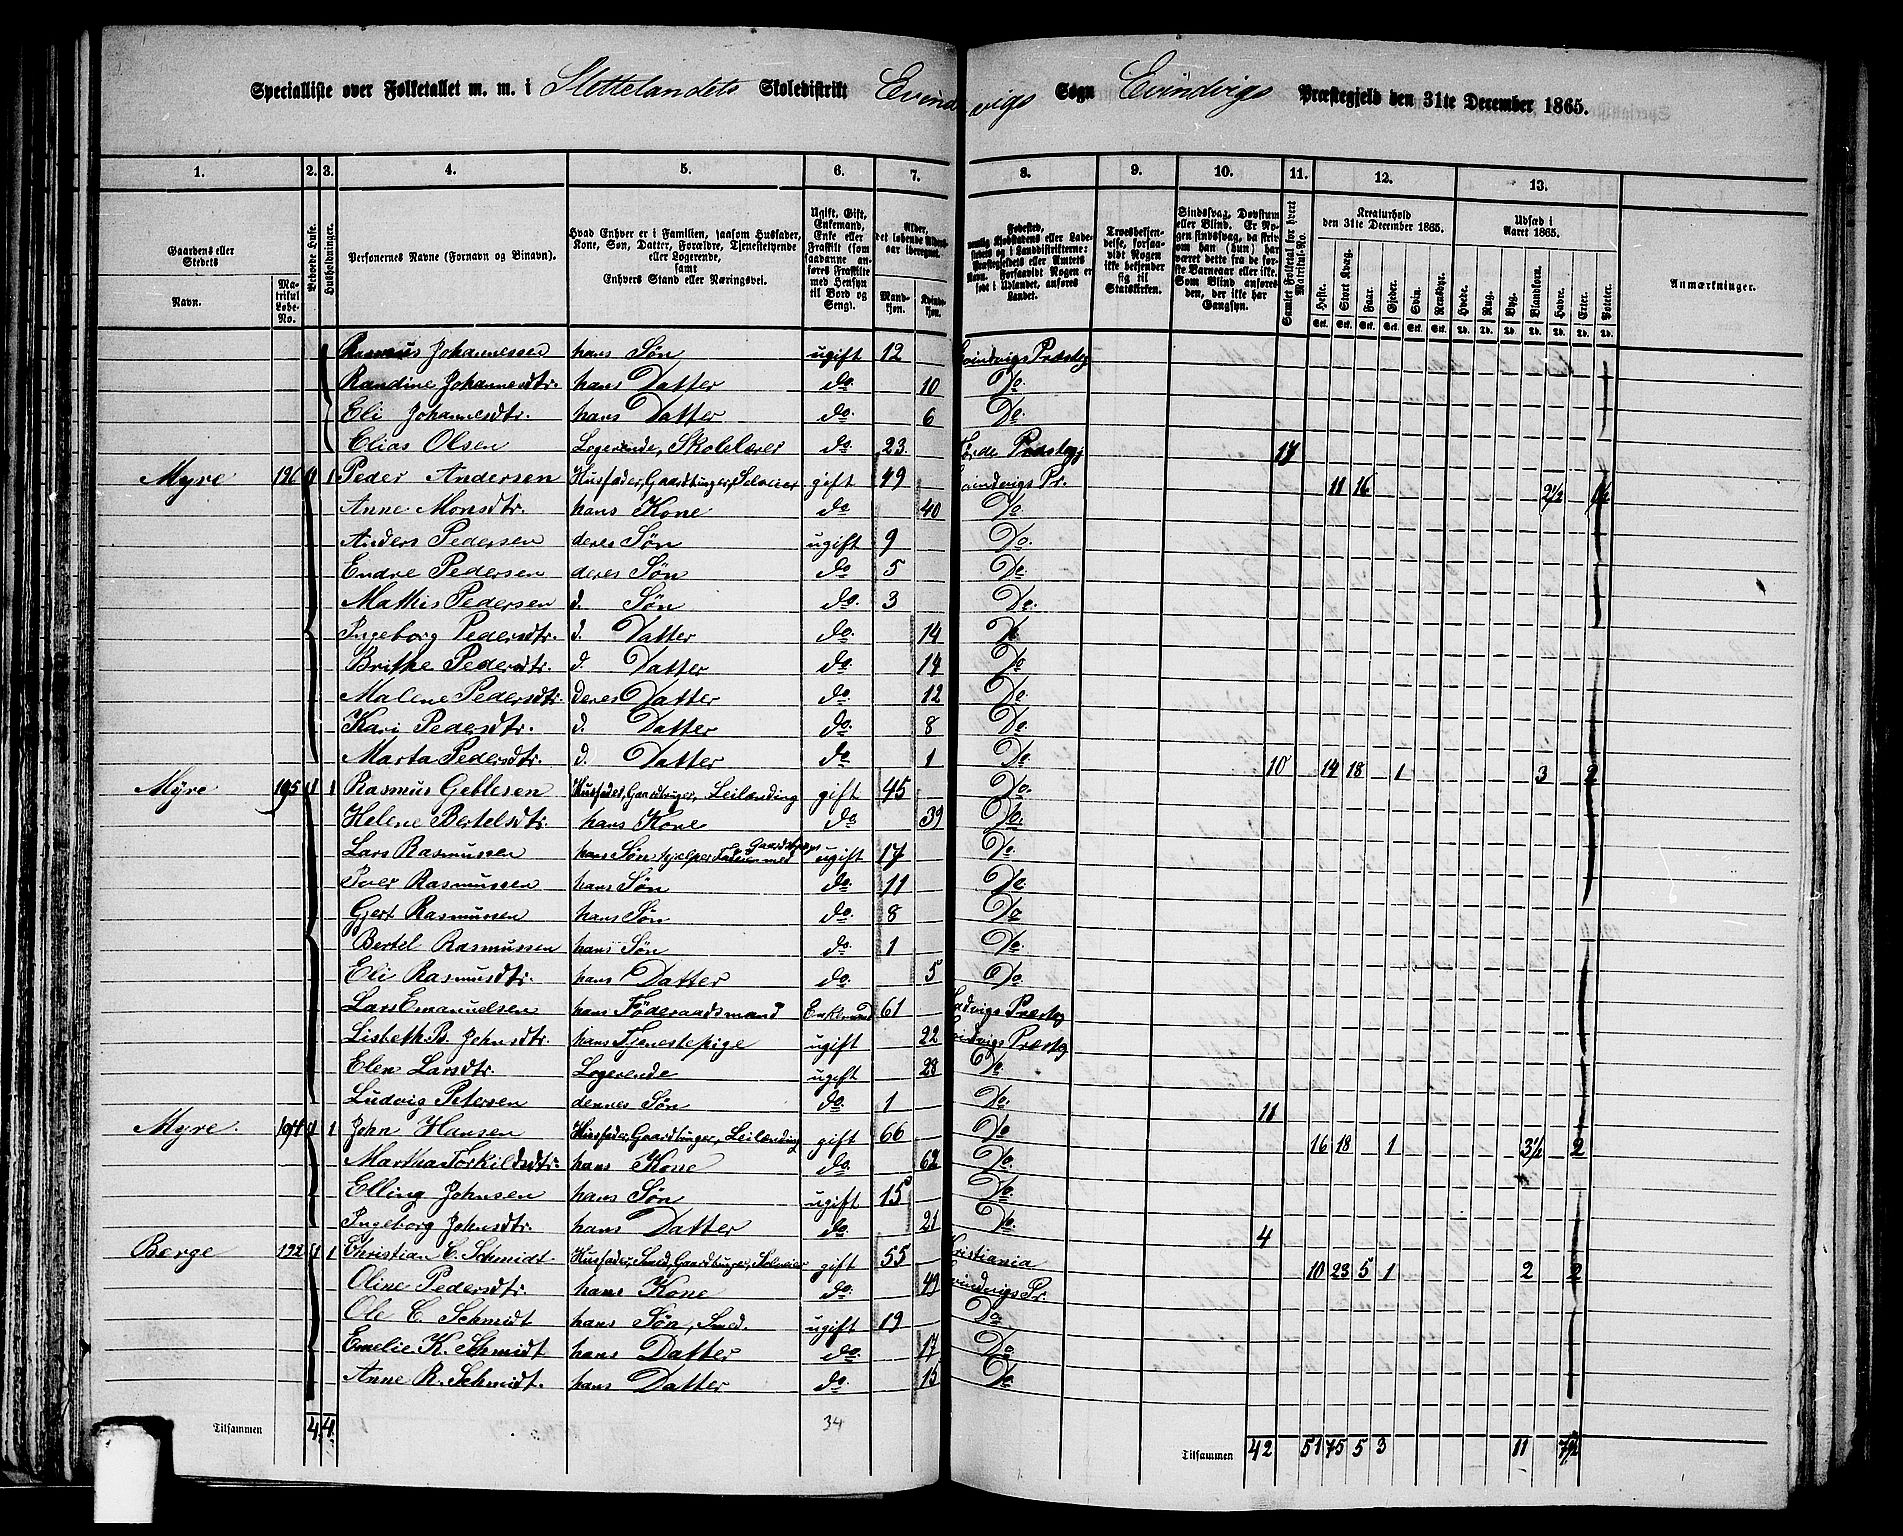 Specialliste over Folketallet m. m. i Slettelandets Skoledistrikt Evindvigs Sogn Evindvigs Præstegjeld den 31te December 1865.
1. 2. 3. 4. 5. 6. 7. 8. 9. 10. 11. 12. 13.
Gaardens eller Stedets
Navn.
Matrikul Løbe-No.
Beboede Huse.
Husholdninger.
Personernes Navne (Fornavn og Binavn).
Hvad Enhver er i Familien, saasom Husfader, Kone, Søn, Datter, Forældre, Tjenestetyende eller Logerende, samt Enhvers Stand eller Næringsvei.
Ugift, Gift, Enkemand, Enke eller Fraskilt (som saadanne anføres Fraskilte med Hensyn til Bord og Seng).
Alder, det løbende Alders-aar iberegnet.
Mandkjøn. Kvindekjøn.
Troesbekjendelse, forsaavidt Nogen ikke bekjender sig til Statskirken.
Sindssvag, Døvstum eller Blind.
Samlet Folketal for hvert Matrikul-No.
Kreaturhold den 31te December 1865.
Heste. Stort Kvæg. Faar. Gjeder. Svin. Rensdyr.
Udsæd i Aaret 1865.
Hvede. Rug. Byg. Blandkorn. Havre. Erter. Poteter.
Anmærkninger.
Rasmus Johannessen hans Søn ugift 12 Evindvigs Præsteg
Randine Johannesdtr. hans Datter do. 10 Do
Eli Johannesdtr. hans Datter do. 6 Do
Elias Olsen Logerende, Skolelærer do 23 Førde Præsteg 17
Myre 196 1 1 Peder Andersen Husfader, Gaardbruger, Selveier gift 49 Evindvigs Pr. 11 16 2½ 1½
Anne Monsdtr. hans Kone do 40 Do
Anders Pedersen deres Søn ugift 9 Do.
Endre Pedersen deres Søn do 5 Do
Mathis Pedersen d. Søn do. 3 Do.
Ingeborg Pedersdtr. d. Datter do. 14 Do
Brithe Pedersdtr. d. Datter do. 14 Do
Malene Pedersdtr. deres Datter do 12 Do
Kari Pedersdtr. d. Datter do. 8 Do
Marta Pedersdtr. d. Datter do 1 Do 10
Myre 195 1 1 Rasmus Geblesen Husfader, Gaardbruger, Leilænding gift 45 Do. 14 18 1 3 2
Helene Bertelsdtr. hans Kone do 39 Do.
Lars Rasmussen hans Søn hjelper Faderen med Gaardsbruget ugift 17 Do
Iver Rasmussen hans Søn do. 11 Do
Gjert Rasmussen hans Søn do. 8 Do
Bertel Rasmussen hans Søn do. 1 Do
Eli Rasmusdtr. hans Datter do. 5 Do.
Lars Emanuelsen hans Føderaadsmand Enkemand 61 Ladvigs Præsteg
Lisbeth B. Johnsdtr. hans Tjenestepige ugift 22 Evindvigs Præsteg
Elen Larsdtr. Logerende ugift 28 Do
Ludvig Petersen dennes Søn do. 1 Do. 11
Myre. 194 1 1 John Hansen Husfader, Gaardbruger, Leilænding gift 66 Do 16 18 1 3½ 2
Martha Torkildsdtr. hans Kone do. 62 Do.
Elling Johnsen hans Søn ugift 15 Do.
Ingeborg Johnsdtr. hans Datter do 21 Do. 4
Berge 192 1 1 Christian C. Schmidt Husfader, Smed, Gaardbruger, Selveier gift 55 Kristiania 10 23 5 1 2 2
Oline Pedersdtr. hans Kone do. 49 Evindvigs Pr.
Ole C. Schmidt hans Søn, Smed. ugift 19 Do
Emelie K. Schmidt hans Datter do. 17 Do
Anne R. Schmidt. hans Datter do. 15 Do
Tilsammen 4 4 34 Tilsammen 42 51 75 5 3 11 7½